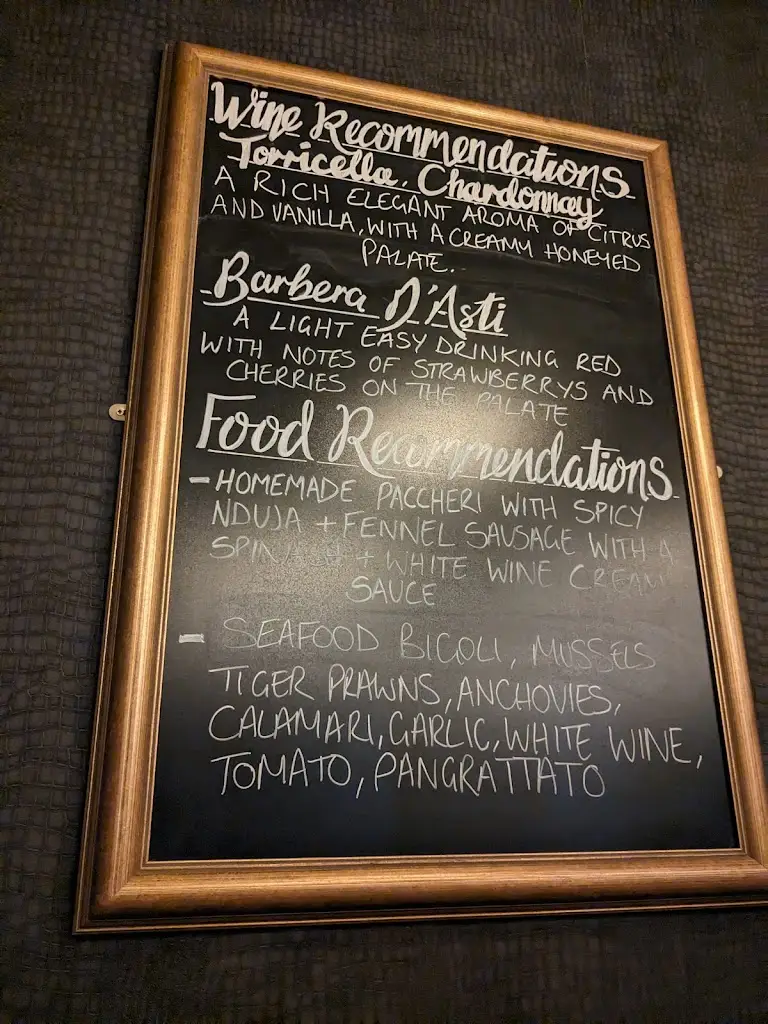 Wine Recommendations
Torricella. Chardonnay
A RICH ELEGANT AROMA OF CITRUS
AND VANILLA, WITH A CREAMY HONEYED
PALATE..
Barbera D'Asti
A LIGHT EASY DRINKING RED
WITH NOTES OF STRAWBERRYS AND
CHERRIES ON THE PALATE
Food Recommendations
- HOMEMADE PACCHERI WITH SPICY
NDUJA + FENNEL SAUSAGE WITH A
SPINACH + WHITE WINE CREAM
SAUCE
- SEAFOOD BIGOLI, MUSSELS
TIGER PRAWNS, ANCHOVIES,
CALAMARI, GARLIC, WHITE WINE,
TOMATO, PANGRATTATO